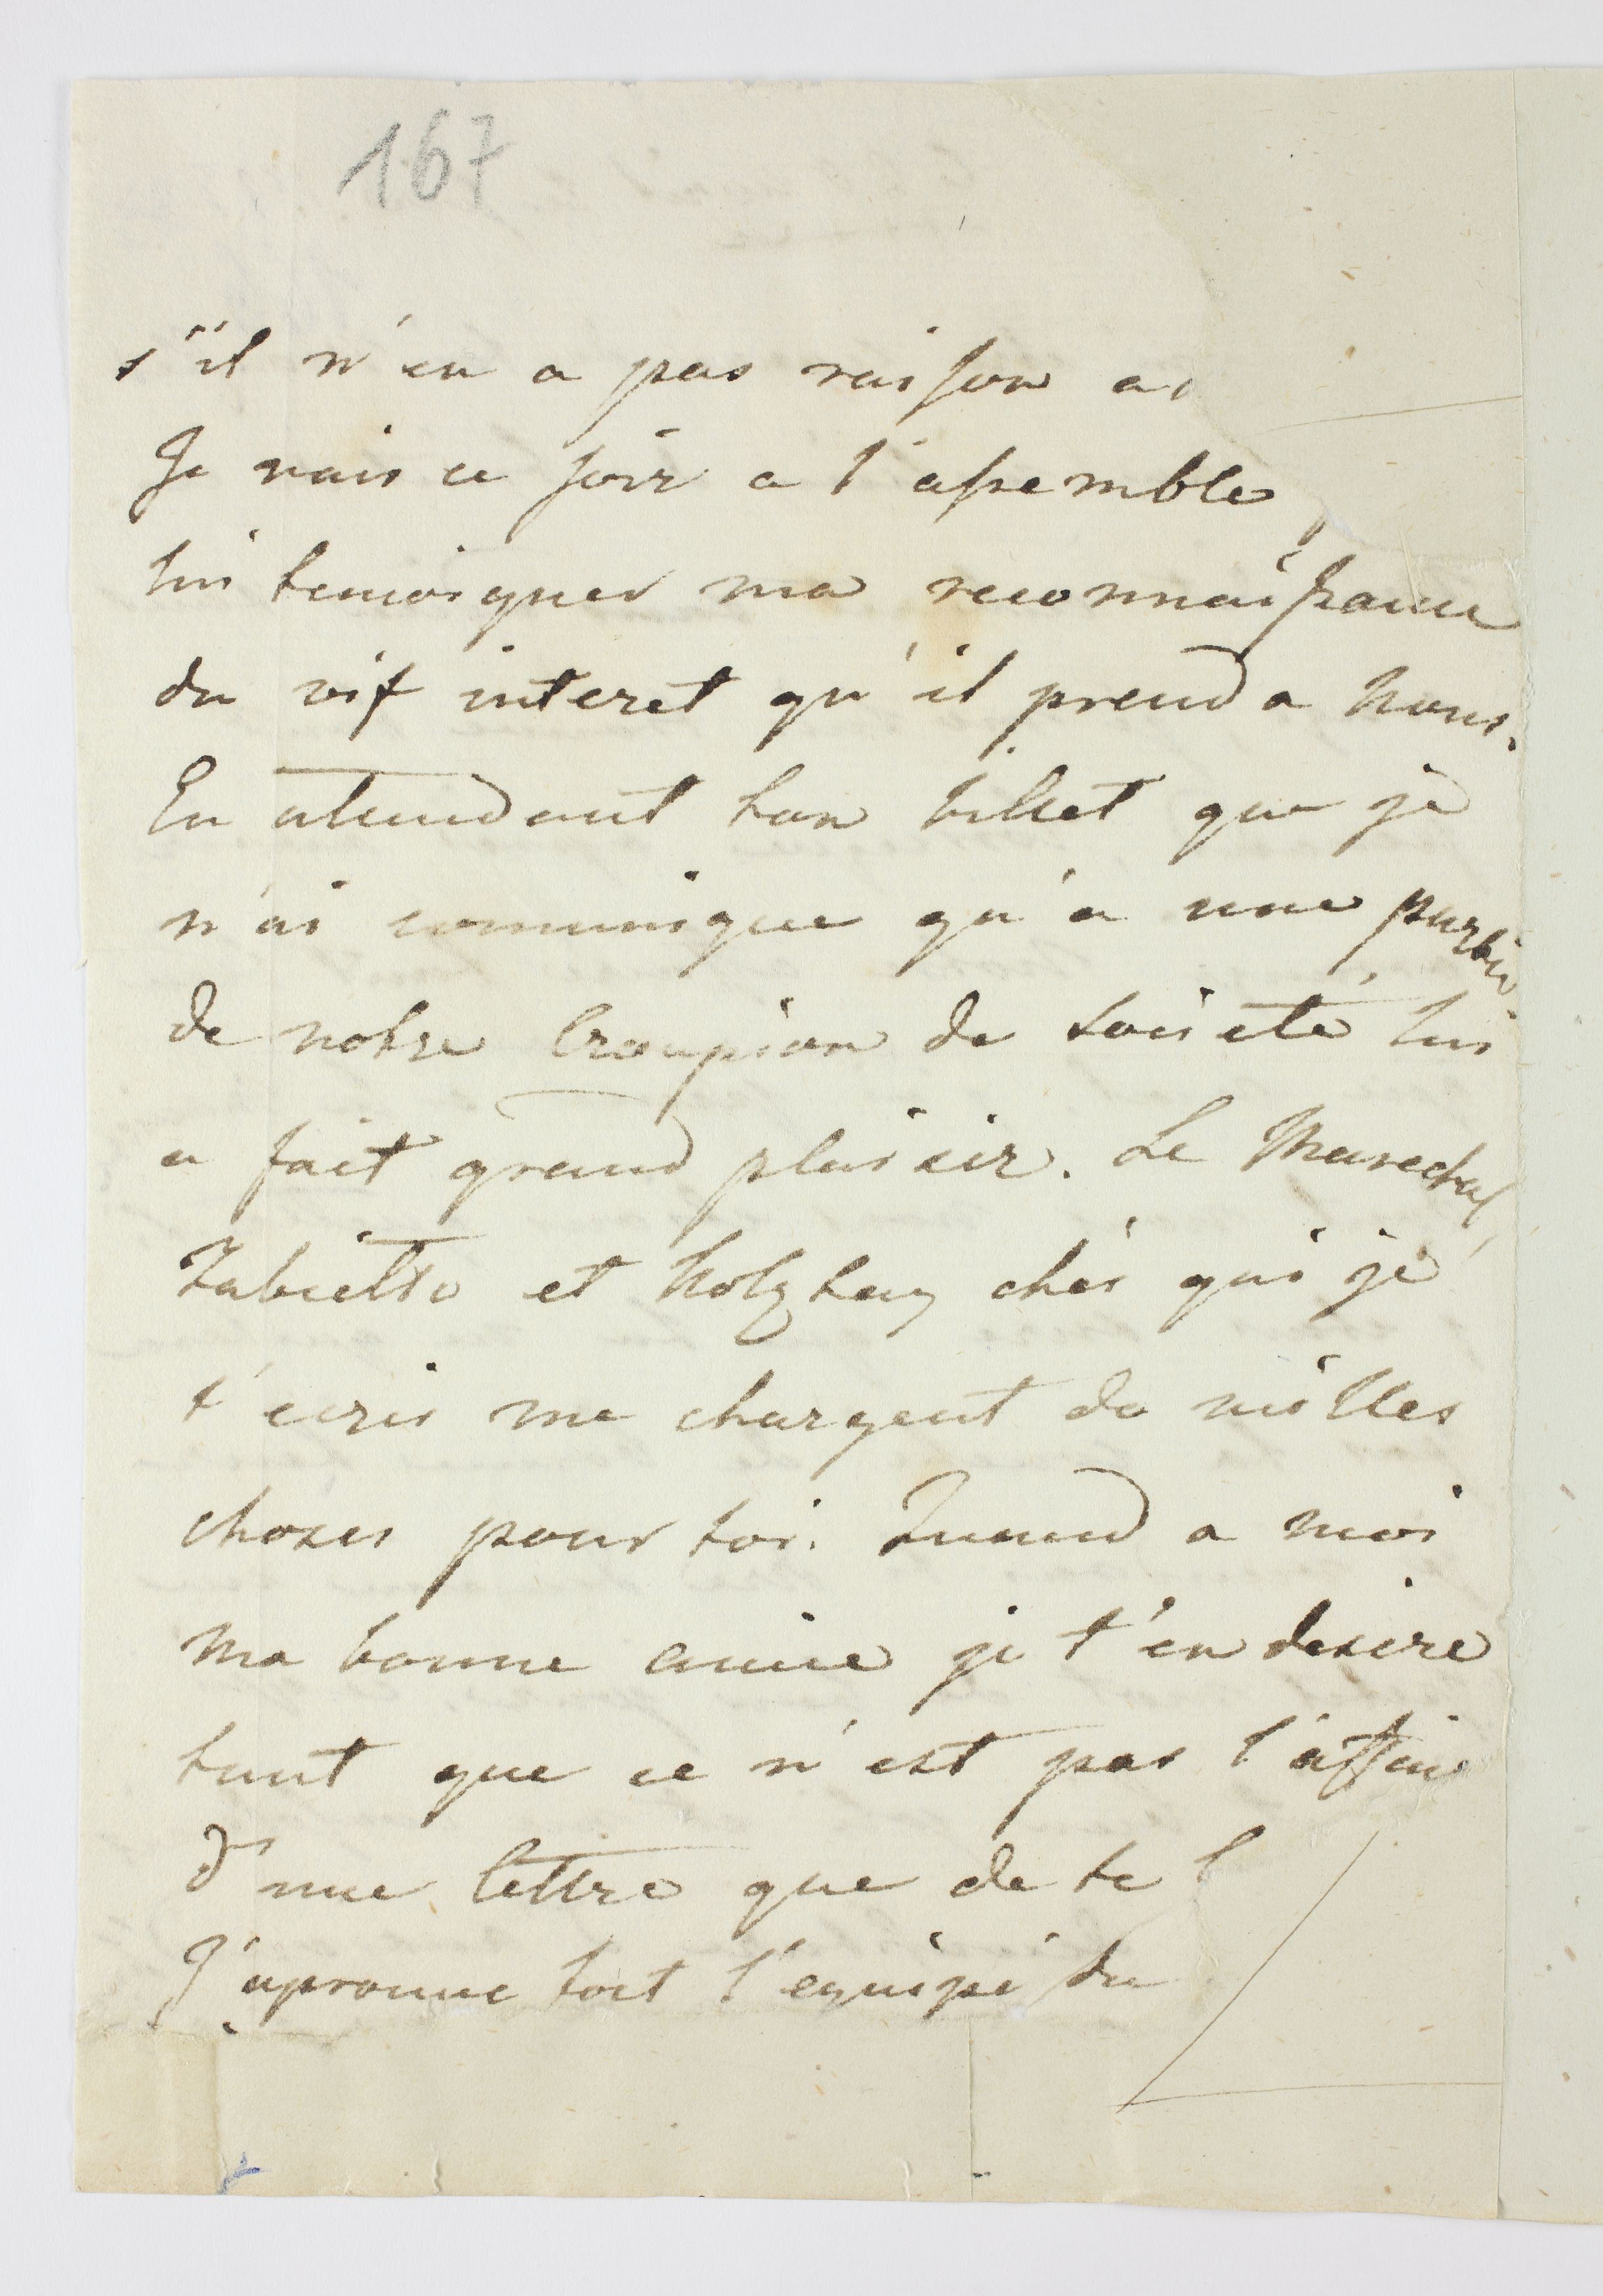 167
s'il n'en a pas raison a
Je vais ce soir a l'assemble
lui temoigner ma reconnaissance
du vif interet qu'il prend a nous.
En atendant ton billet que je
n'ai comunique qu'a une partie
de notre Croupion de société lui
a fait grand plaisir. Le Marechal
Zabiello et Holzhey chés qui je
t'ecris me chargent de milles
choses pour toi. Quand a moi
ma bonne amie je t'en desire
tant que ce n'est pas l'affaire
d'une lettre que de te l
J'aprouve tout l'equipé du